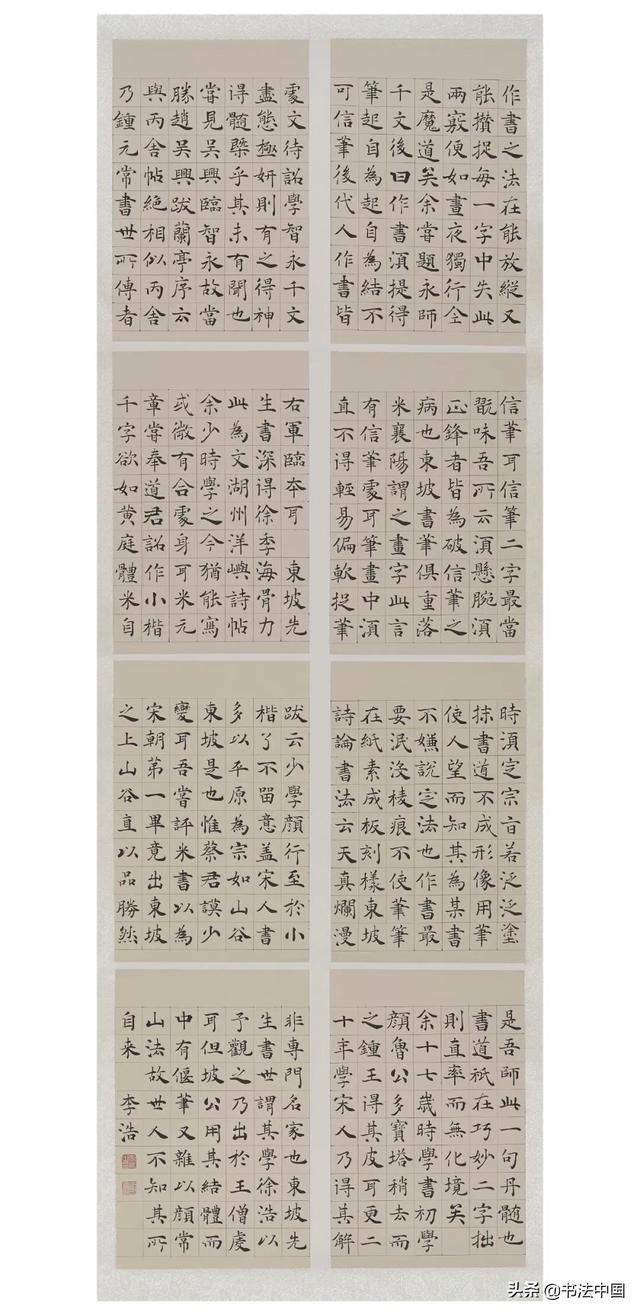 作書之法在能放縱又
能攢捉每一字中失此
兩竅便如晝夜獨行全
是魔道矣余嘗題永師
千文後曰作書須提得
筆起自為起自為結不
可信筆後代人作書皆
信筆耳信筆二字最當
翫味吾所云須懸腕須
正鋒者皆為破信筆之
病也東坡書筆俱重落
米襄陽謂之畫字此言
有信筆處耳筆畫中須
直不得輕易偏軟捉筆
時須定宗旨若泛泛塗
抹書道不成形像用筆
使人望而知其為某書
不嫌說定法也作書最
要泯沒棱痕不使筆筆
在紙素成板刻樣東坡
詩論書法云天真爛漫
是吾師此一句丹髓也
書道祇在巧妙二字拙
則直率而無化境矣
余十七歲時學書初學
顏魯公多寶塔稍去而
之鍾王得其皮耳更二
十年學宋人乃得其解
處文待詔學智永千文
盡態極妍則有之得神
得髓槩乎其未有聞也
嘗見吳興臨智永故當
勝趙吳興跋蘭亭序云
與丙舍帖絕相似丙舍
乃鍾元常書世所傳者
右軍臨本耳 東坡先
生書深得徐季海骨力
此為文湖州洋嶼詩帖
余少時學之今猶能寫
或微有合處身耳米元
章嘗奉道君詔作小楷
千字欲如黃庭體米自
跋云少學顏行至於小
楷了不留意蓋宋人書
多以平原為宗如山谷
東坡是也惟蔡君謨少
變耳吾嘗評米書以為
宋朝第一畢竟出東坡
之上山谷直以品勝然
非專門名家也東坡先
生書世謂其學徐浩以
予觀之乃出於王僧虔
耳但坡公用其結體而
中有偃筆又雜以顏常
山法故世人不知其所
自來 李浩
头条 @书法中国